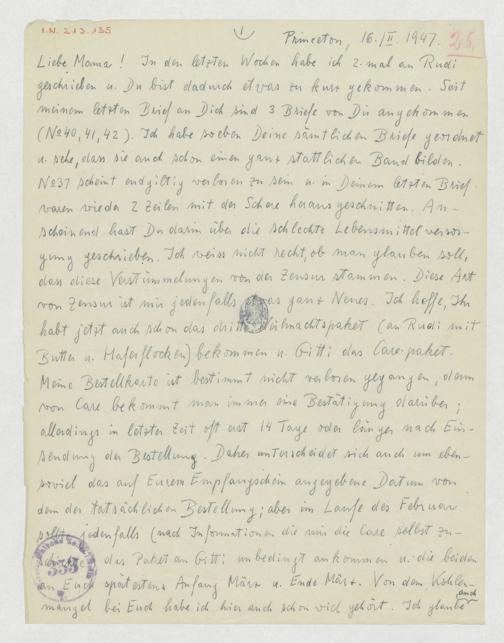 I.N. 213.135
1
Princeton, 16./II. 1947.
25.
Liebe Mama! In den letzten Wochen habe ich 2-mal an Rudi
geschrieben u. Du bist dadurch etwas zu kurz gekommen. Seit
meinem letzten Brief an Dich sind 3 Briefe von Dir angekommen
(No 40, 41, 42). Ich habe soeben Deine sämtlichen Briefe geordnet
u. sehe, dass sie auch schon einen ganz stattlichen Band bilden.
No 37 scheint endgiltig verloren zu sein u. in Deinem letzten Brief
waren wieder 2 Zeilen mit der Schere herausgeschnitten. An-
scheinend hast Du darin über die schlechte Lebensmittelversor-
gung geschrieben. Ich weiss nicht recht, ob man glauben soll,
dass diese Verstümmelungen von der Zensur stammen. Diese Art
von Zensur ist mir jedenfalls etwas ganz Neues. Ich hoffe, Ihr
habt jetzt auch schon das dritte Weihnachtspaket (an Rudi mit
Butter u. Haferflocken) bekommen u. Gitti das Care-paket.
Meine Bestellkarte ist bestimmt nicht verloren gegangen, denn
von Care bekommt man immer eine Bestätigung darüber;
allerdings in letzter Zeit oft erst 14 Tage oder länger nach Ein-
sendung der Bestellung. Daher unterscheidet sich auch um eben-
soviel das auf Eurem Empfangschein angegebene Datum von
dem der tatsächlichen Bestellung; aber im Laufe des Februar
sollte jedenfalls (nach Informationen die mir die Care selbst zu-
das Paket an Gitti unbedingt ankommen u. die beiden
an Euch spätestens Anfang März u. Ende März. Von dem Kohlen-
mangel bei Euch habe ich hier auch schon viel gehört. Ich glaube auch
333